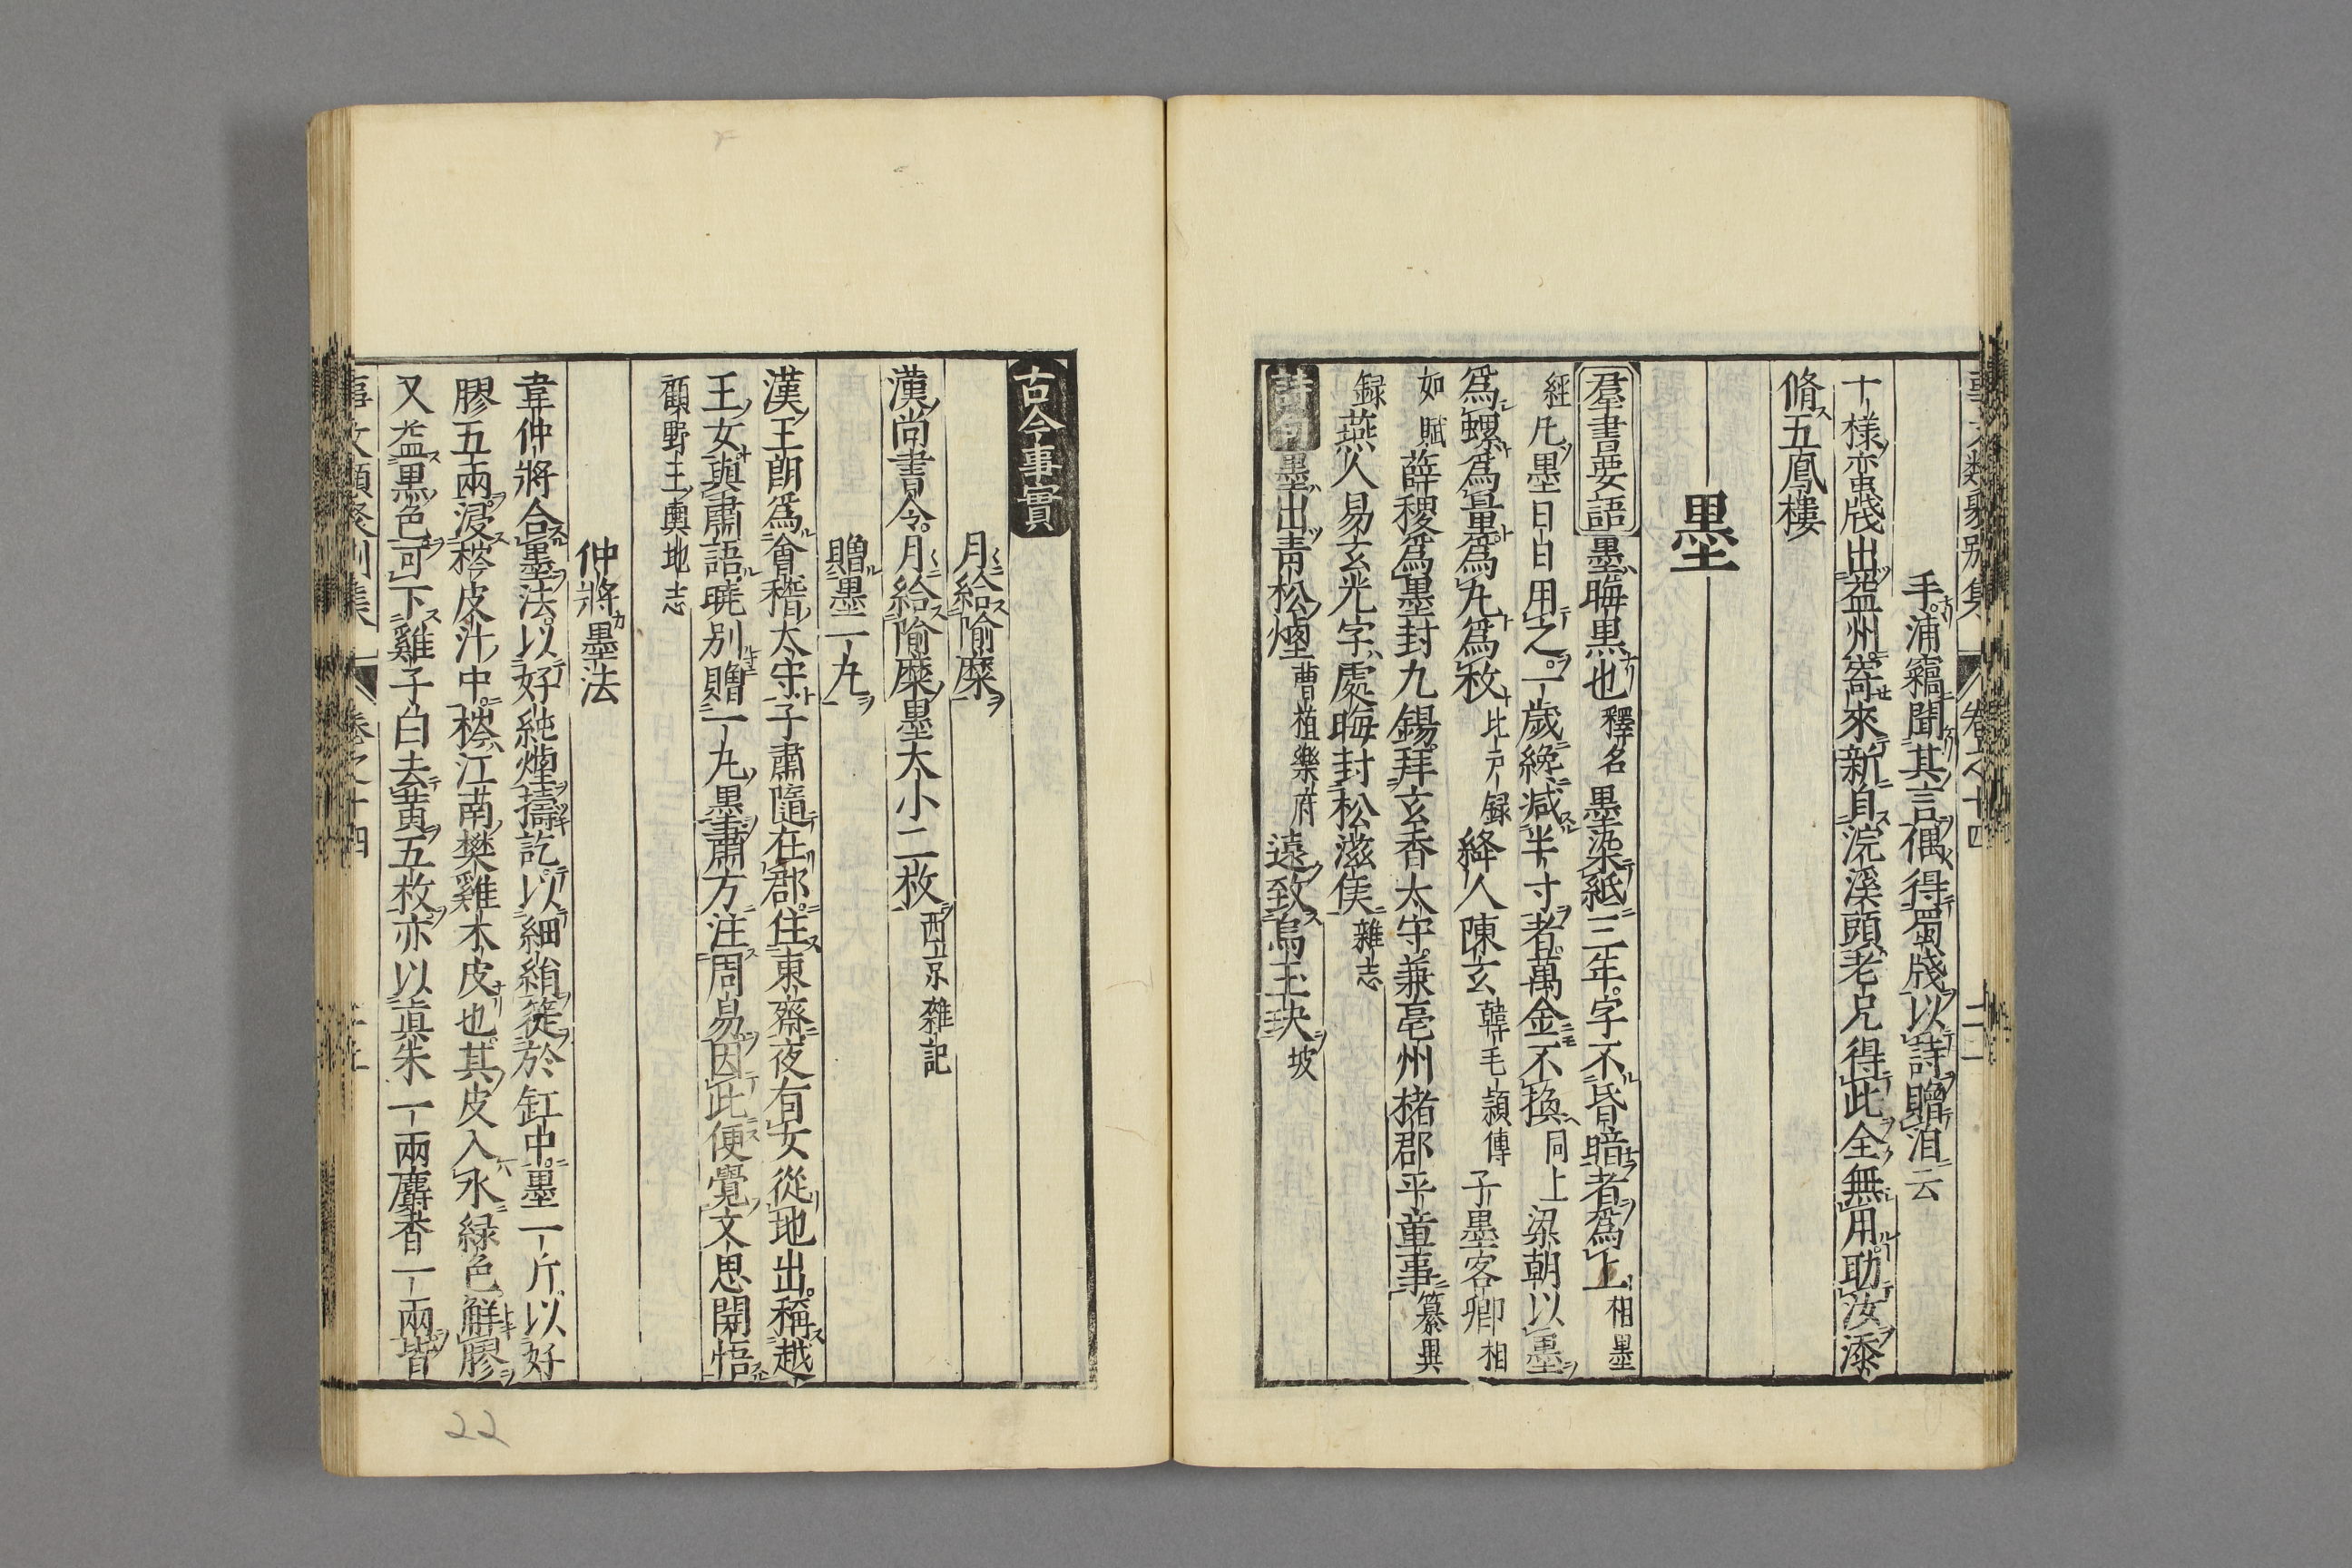 手浦竊聞其言偶得蜀牋以詩贈洎云
十樣蛮牋出益州寄來新自浣溪頭老兄得此全無用助汝添
脩五鳳樓
墨
羣書要語墨晦黒也釋名墨染紙三年字不昏暗者爲上相墨
經凡墨日日用之一歲纔减半寸者萬金不換同上梁朝以墨
爲螺爲量爲丸爲枚比户録絳人陳玄韓毛頴傳子墨客卿相
如賦薛稷爲墨封九錫拜玄香太守兼亳州楮郡平章事纂異
録燕人易玄光字處晦封松滋侯雜志
詩句墨出青松烟曹植樂府遠致烏玉玦坡
古今事實
月給隃糜
漢尚書令月給隃糜墨大小二枚西京雜記
贈墨一丸
漢王朗爲會稽太守子肅隨在郡住東齋夜有女從地出稱越
王女與肅語曉別贈一丸墨肅方注周易因此便覺文思開悟
顧野王輿地志
仲將墨法
韋仲將合墨法以好純煙擣訖以細絹簁於缸中墨一斤以好
膠五兩浸梣皮汁中梣江南樊雞木皮也其皮入水緑色觧膠
又益黒色可下雞子白去黄五枚亦以眞朱一兩麝香一兩皆